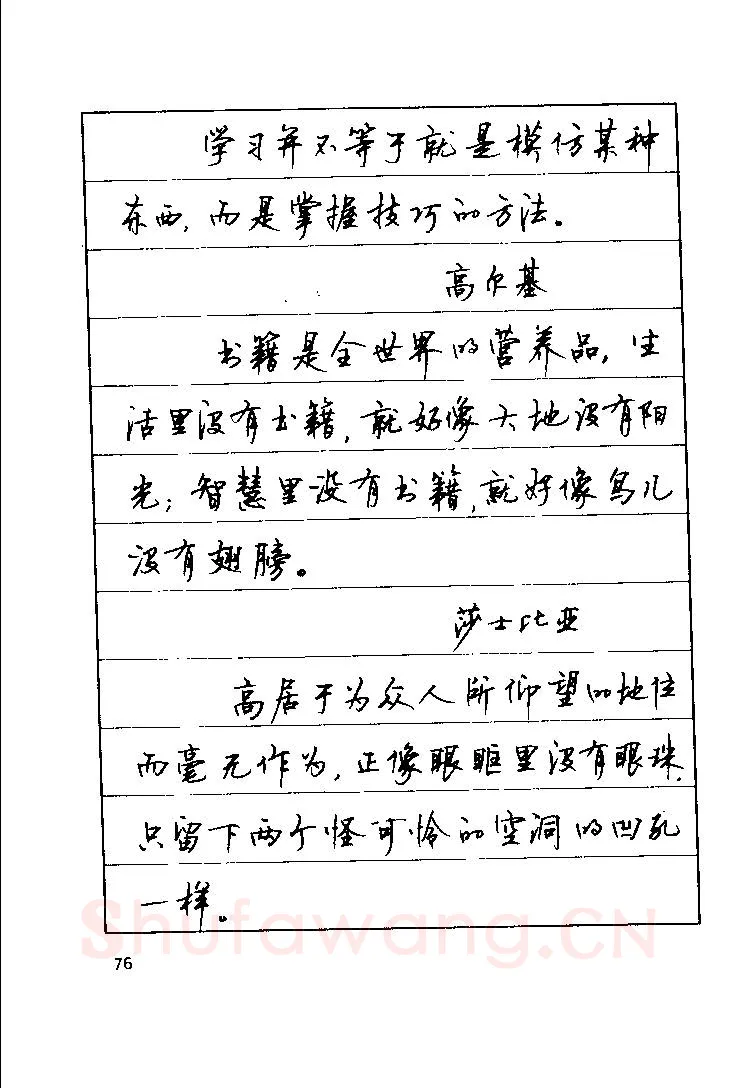 学习并不等于就是模仿某种
东西，而是掌握技巧的方法。
高尔基
书籍是全世界的营养品，生
活里没有书籍，就好像大地没有阳
光；智慧里没有书籍，就好像鸟儿
没有翅膀。
莎士比亚
高居于为众人所仰望的地位
而毫无作为，正像眼眶里没有眼珠，
只留下两个怪可怜的空洞的凹孔
一样。
Shufawang.CN
76